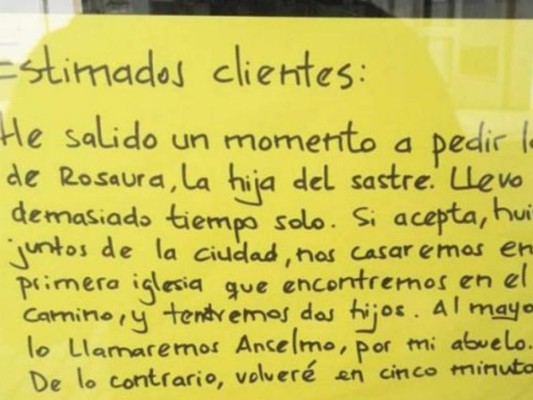 Estimados clientes:
He salido un momento a pedir l
de Rosaura, la hija del sastre. Llevo
demasiado tiempo solo. Si acepta, hui
juntos de la ciudad, nos casaremos en
primera iglesia que encontremos en el
camino, y tentremos dos hijos. Al mayo
lo llamaremos Anselmo, por mi abuelo.
De lo contrario, volveré en cinco minuto